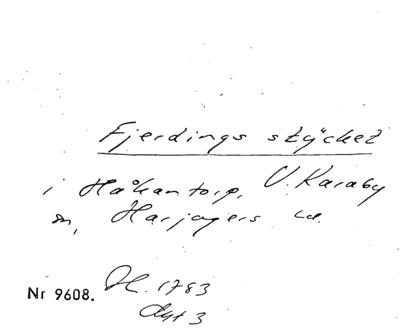 Fjerdings stycket
i Håkantorp, V. Karaby
sn, Harjagers hd.
Nr 9608.
1783
Akt 3